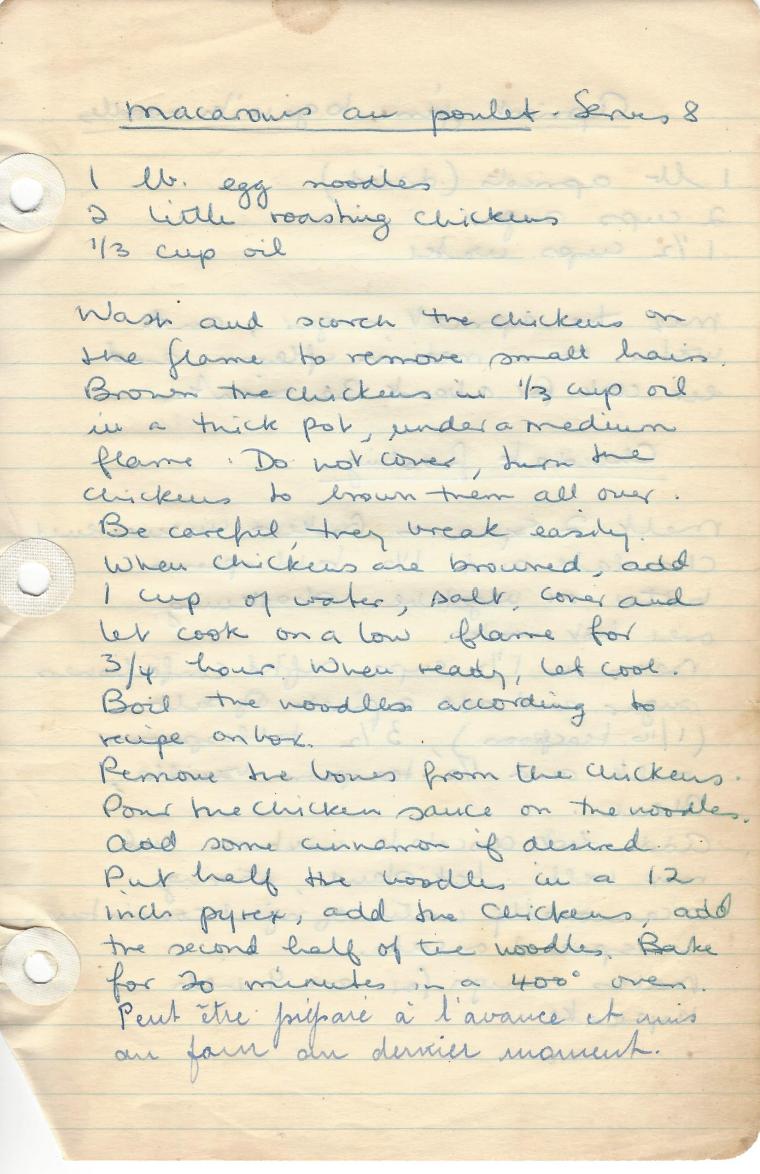 Macaronis au poulet. Serves 8
1 lb. egg noodles
2 little roasting chickens
1/3 cup oil
Wash and scorch the chickens on
the flame to remove small hairs.
Brown the chickens in 1/3 cup oil
in a thick pot, under a medium
flame. Do not cover, turn the
chickens to brown them all over.
Be careful, they break easily.
When chickens are browned, add
1 cup of water, salt, cover and
let cook on a low flame for
3/4 hour. When ready, let cool.
Boil the noodles according to
recipe on box.
Remove the bones from the chickens.
Pour the chicken sauce on the noodles.
Add some cinnamon if desired.
Put half the noodles in a 12
inch pyrex, add the chickens, add
the second half of the noodles. Bake
for 20 minutes in a 400° oven.
Peut être préparé à l'avance et mis
au four au dernier moment.